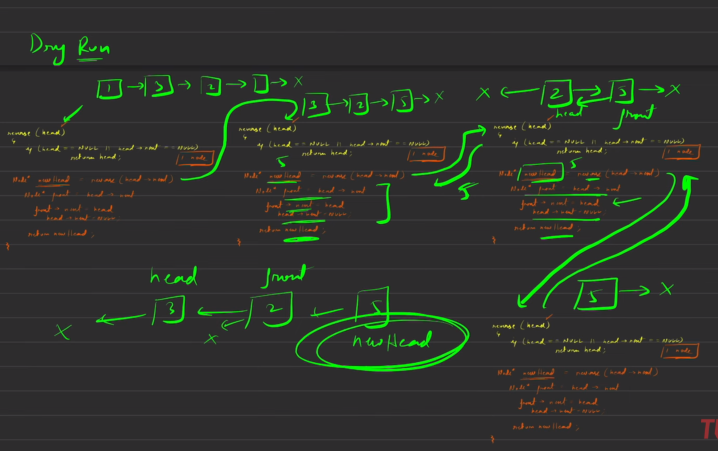 Dry Run
1 → 3 → 2 → → X
3 → 2 → 5 → X
X ← 2 → 5 → X
head front
reverse (head)
if (head == NULL || head → next == NULL)
return head;
1 node
Node* newHead = reverse (head → next)
Node* front = head → next
front → next = head
head → next = NULL
return newHead;
}
reverse (head)
if (head == NULL || head → next == NULL)
return head;
5
1 node
Node* newHead = reverse (head → next)
Node* front = head → next
front → next = head
head → next = NULL
return newHead;
}
5
reverse (head)
if (head == NULL || head → next == NULL)
return head;
5
1 node
Node* newHead = reverse (head → next)
Node* front = head → next
front → next = head
head → next = NULL
return newHead;
}
head front
X ← 3 ← 2 ← 5
X
newHead
5 → X
reverse (head)
if (head == NULL || head → next == NULL)
return head;
1 node
Node* newHead = reverse (head → next)
Node* front = head → next
front → next = head
head → next = NULL
return newHead;
}